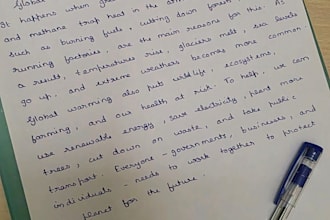 Global
It happens when
and methane trap heat in the
such as burning fuels, cutting down forest
running factories, are the main reasons for this. As
a result, temperatures rise, glaciers melt, sea levels
go up, and extreme weathers becomes more common
Global warming also puts wildlife, ecosystems,
farming, and our health at risk. To help, we can
use renewable energy, save electricity, plant more
trees, cut down on waste, and take public
transport. Everyone - governments, businesses, and
individuals - needs to work together to protect
planet for the future.